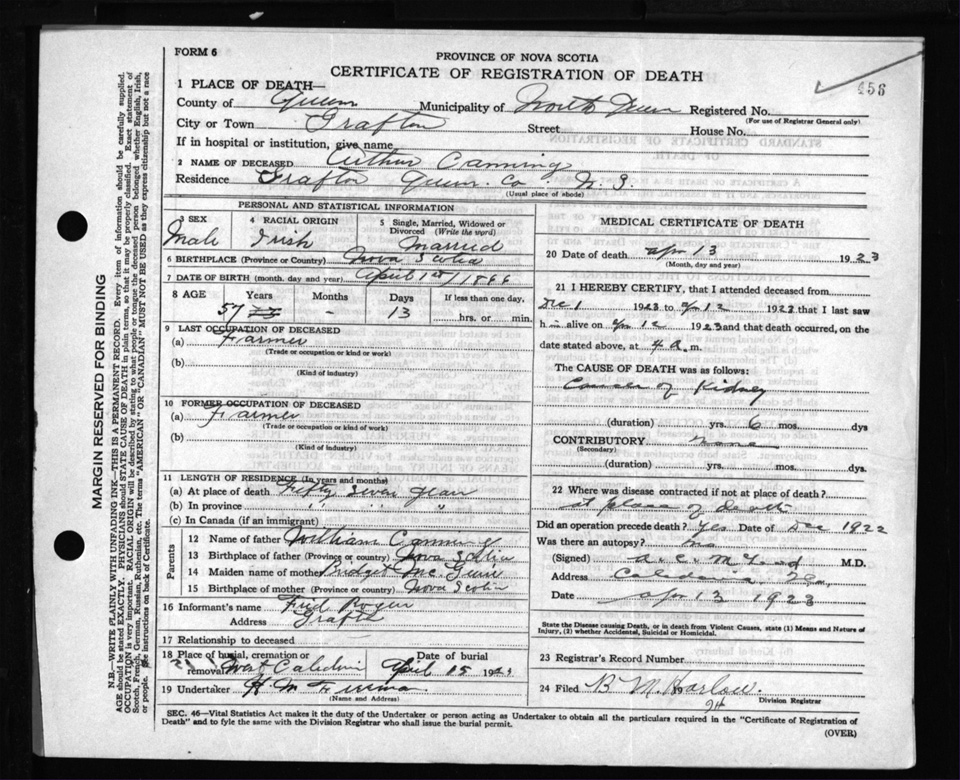 FORM 6
PROVINCE OF NOVA SCOTIA
CERTIFICATE OF REGISTRATION OF DEATH
456
1 PLACE OF DEATH—
County of Queens Municipality of North Queens Registered No.
(For use of Registrar General only)
City or Town Grafton Street House No.
If in hospital or institution, give name
2 NAME OF DECEASED Arthur Canning
Residence Grafton Queens Co N. S.
(Usual place of abode)
PERSONAL AND STATISTICAL INFORMATION
3 SEX 4 RACIAL ORIGIN 5 Single, Married, Widowed or Divorced (Write the word)
Male Irish Married
6 BIRTHPLACE (Province or Country) Nova Scotia
7 DATE OF BIRTH (month, day and year) April 1st/1866
8 AGE Years Months Days If less than one day,
57 - 13 hrs. or min.
9 LAST OCCUPATION OF DECEASED
(a) Farmer
(Trade or occupation or kind or work)
(b)
(Kind of industry)
10 FORMER OCCUPATION OF DECEASED
(a) Farmer
(Trade or occupation or kind of work)
(b)
(Kind of industry)
11 LENGTH OF RESIDENCE (In years and months)
(a) At place of death Fifty Seven Years
(b) In province " " "
(c) In Canada (if an immigrant)
Parents
12 Name of father William Canning
13 Birthplace of father (Province or country) Nova Scotia
14 Maiden name of mother Bridget Mc Guire
15 Birthplace of mother (Province or country) Nova Scotia
16 Informant's name Fred Rogers
Address Grafton
17 Relationship to deceased
18 Place of burial, cremation or removal Date of burial
West Caledonia April 15 1923
19 Undertaker H M Freeman
(Name and Address)
MEDICAL CERTIFICATE OF DEATH
20 Date of death Apr 13 1923
(Month, day and year)
21 I HEREBY CERTIFY, that I attended deceased from
Dec 1 1923 to Apr 12 1923 that I last saw
h im alive on Apr 12 1923 and that death occurred, on
date stated above, at 4 a. m.
The CAUSE OF DEATH was as follows:
Cancer of Kidney
(duration) yrs. 6 mos. dys
CONTRIBUTORY None
(Secondary)
(duration) yrs. mos. dys.
22 Where was disease contracted if not at place of death?
at place of death
Did an operation precede death? Yes Date of Dec 1922
Was there an autopsy? no
(Signed) M.D.
Address Caledonia
Date Apr 13 1923
State the Disease causing Death, or in death from Violent Causes, state (1) Means and Nature of Injury, (2) whether Accidental, Suicidal or Homicidal.
23 Registrar's Record Number
24 Filed B M Harlow 19
Division Registrar
SEC. 46—Vital Statistics Act makes it the duty of the Undertaker or person acting as Undertaker to obtain all the particulars required in the "Certificate of Registration of
Death" and to fyle the same with the Division Registrar who shall issue the burial permit.
(OVER)
MARGIN RESERVED FOR BINDING
N.B.—WRITE PLAINLY WITH UNFADING INK—THIS IS A PERMANENT RECORD. Every item of information should be carefully supplied.
AGE should be stated EXACTLY. PHYSICIANS should STATE CAUSE OF DEATH in plain terms, so that it may be properly classified. Exact statement of
OCCUPATION is very important. RACIAL ORIGIN will be described by stating to what people or tongue the deceased person belonged whether English, Irish,
Scotch, French, German, Russian, Ruthenian, etc. The terms "AMERICAN" OR "CANADIAN" MUST NOT BE USED as they express citizenship but not a race
or people. See instructions on back of Certificate.